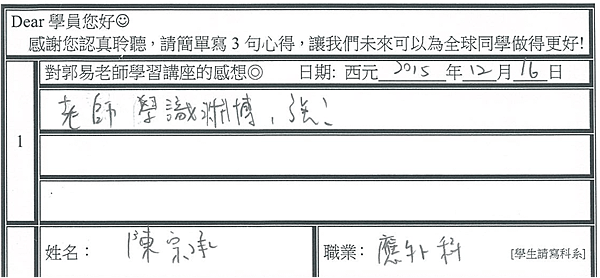 Dear 學員您好☺
感謝您認真聆聽，請簡單寫 3 句心得，讓我們未來可以為全球同學做得更好!
對郭易老師學習講座的感想◎ 日期: 西元 2015 年 12 月 16 日
老師學識淵博、強！
1
姓名： 陳宗承 職業： 應外科 [學生請寫科系]